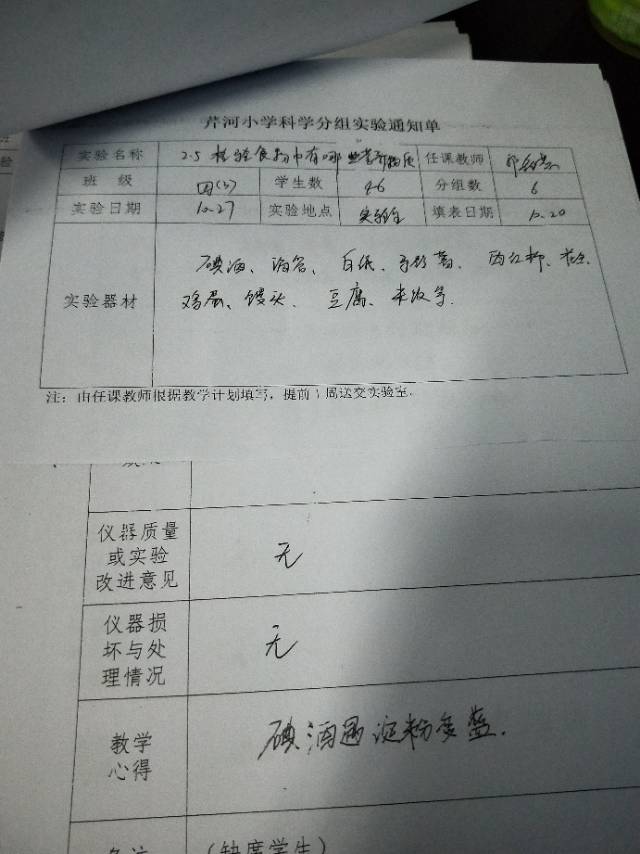 芹河小学科学分组实验通知单
实验名称 2.5 检验食物中有哪些营养物质 任课教师
班 级 四(3) 学生数 46 分组数 6
实验日期 10.27 实验地点 实验室 填表日期 10.20
实验器材 碘酒、滴管、白纸、马铃薯、西红柿、
鸡蛋、馒头、豆腐、米饭等.
注：由任课教师根据教学计划填写，提前1周送交实验室.
仪器质量
或实验
改进意见
无
仪器损
坏与处
理情况
无
教学
心得
碘酒遇淀粉变蓝.
(缺席学生)